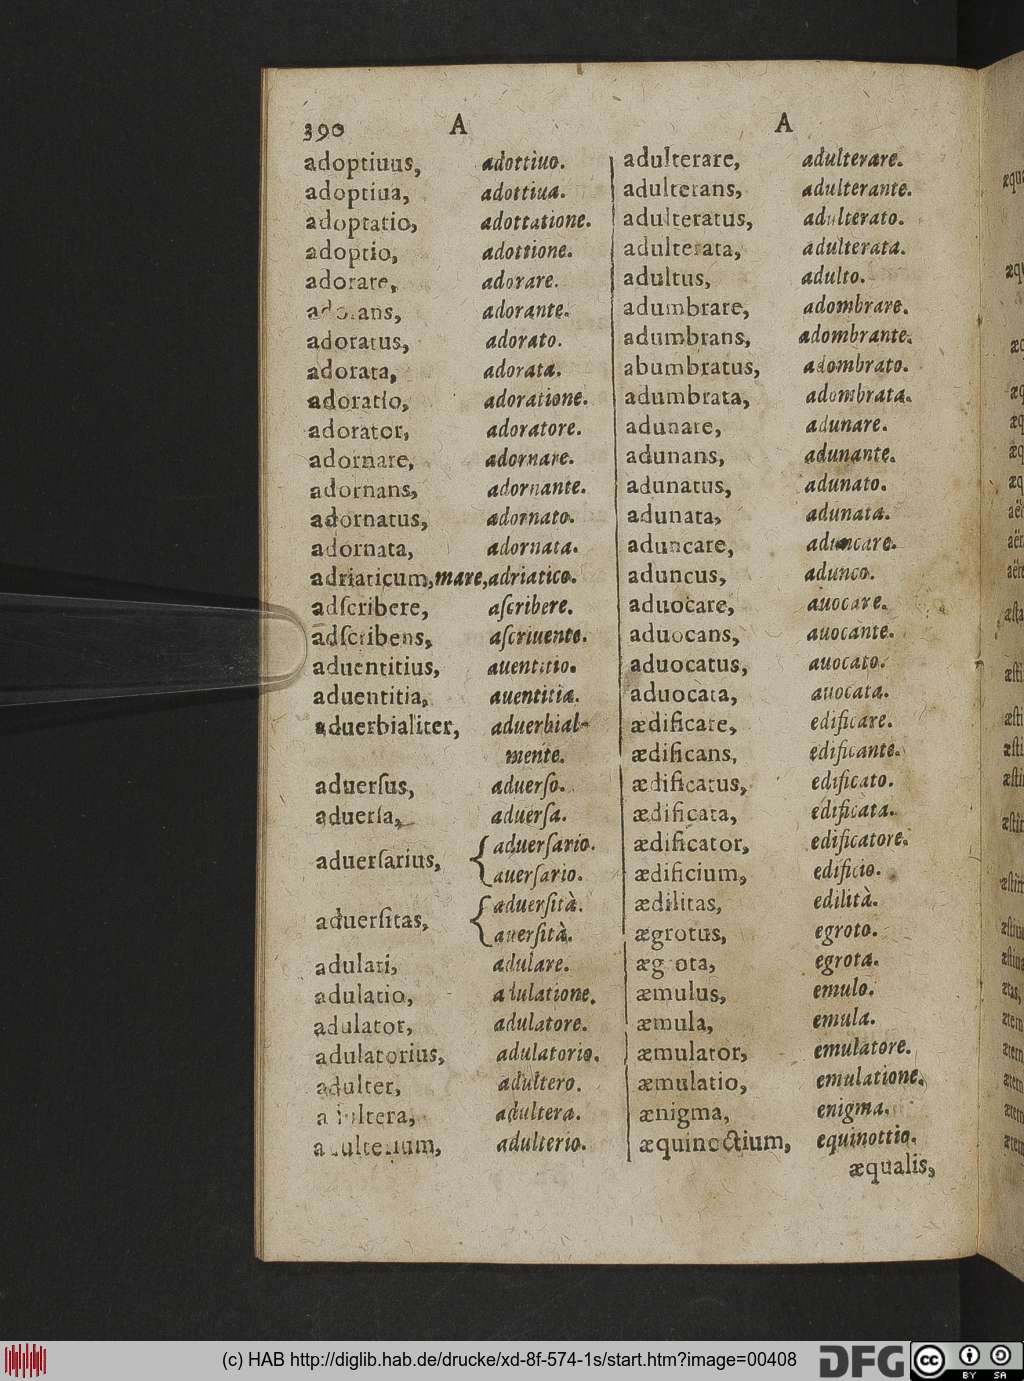 390 A A
adoptiuus, adottiuo.
adoptiua, adottiua.
adoptatio, adottatione.
adoptio, adottione.
adorare, adorare.
adorans, adorante.
adoratus, adorato.
adorata, adorata.
adoratio, adoratione.
adorator, adoratore.
adornare, adornare.
adornans, adornante.
adornatus, adornato.
adornata, adornata.
adriaticum, mare, adriatico.
adſcribere, aſcribere.
adſcribens, aſcriuente.
aduentitius, auentitio.
aduentitia, auentitia.
aduerbialiter, aduerbial-
mente.
aduerſus, aduerſo.
aduerſa, aduerſa.
aduerſarius, { aduerſario.
auerſario.
aduerſitas, { aduerſità.
auerſità.
adulari, adulare.
adulatio, adulatione.
adulator, adulatore.
adulatorius, adulatorio.
adulter, adultero.
adultera, adultera.
adulterium, adulterio.
adulterare, adulterare.
adulterans, adulterante.
adulteratus, adulterato.
adulterata, adulterata.
adultus, adulto.
adumbrare, adombrare.
adumbrans, adombrante.
abumbratus, adombrato.
adumbrata, adombrata.
adunare, adunare.
adunans, adunante.
adunatus, adunato.
adunata, adunata.
aduncare, aduncare.
aduncus, adunco.
aduocare, auocare.
aduocans, auocante.
aduocatus, auocato.
aduocata, auocata.
ædificare, edificare.
ædificans, edificante.
ædificatus, edificato.
ædificata, edificata.
ædificator, edificatore.
ædificium, edificio.
ædilitas, edilità.
ægrotus, egroto.
ægrota, egrota.
æmulus, emulo.
æmula, emula.
æmulator, emulatore.
æmulatio, emulatione.
ænigma, enigma.
æquinoctium, equinottio.
æqualis,
(c) HAB http://diglib.hab.de/drucke/xd-8f-574-1s/start.htm?image=00408
DFG
cc BY SA